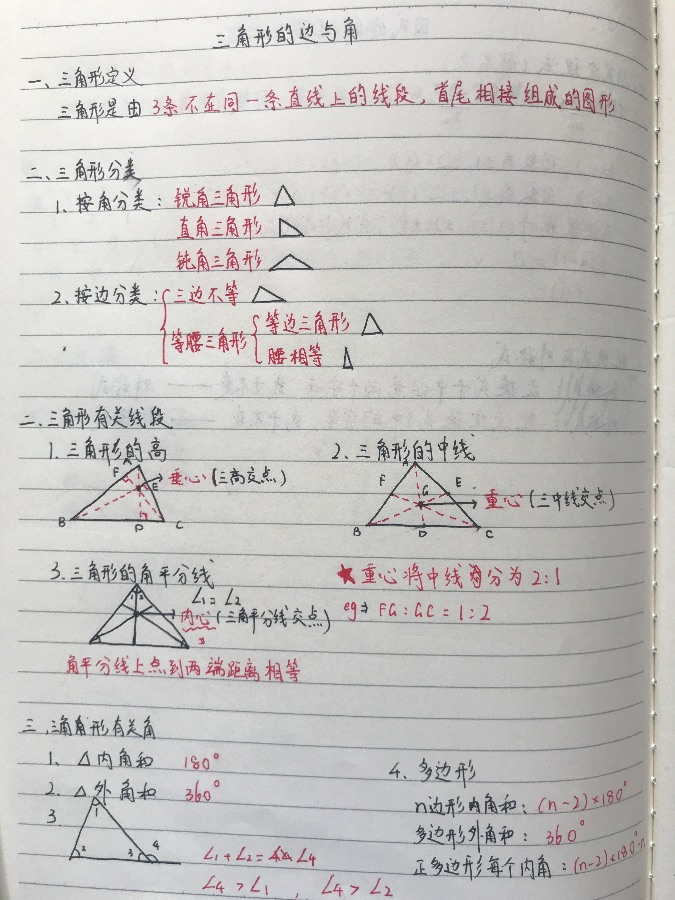 三角形的边与角
一、三角形定义
三角形是由 3条不在同一条直线上的线段，首尾相接组成的图形
二、三角形分类
1. 按角分类：锐角三角形
直角三角形
钝角三角形
2. 按边分类：三边不等
等腰三角形 等边三角形
腰相等
二.三角形有关线段
1.三角形的高
A F E B D C
垂心（三高交点）
2.三角形的中线
A F E G B D C
重心（三中线交点）
3.三角形的角平分线
1 2
∠1=∠2
内心（三角平分线交点）
角平分线上点到两端距离相等
★重心将中线分为2:1
eg⇒ FG:GC=1:2
三.三角形有关角
1. △内角和 180°
2. △外角和 360°
3.
1 2 3 4
∠1+∠2=∠4
∠4>∠1 , ∠4>∠2
4. 多边形
n边形内角和：(n-2)×180°
多边形外角和：360°
正多边形每个内角：(n-2)×180°÷n